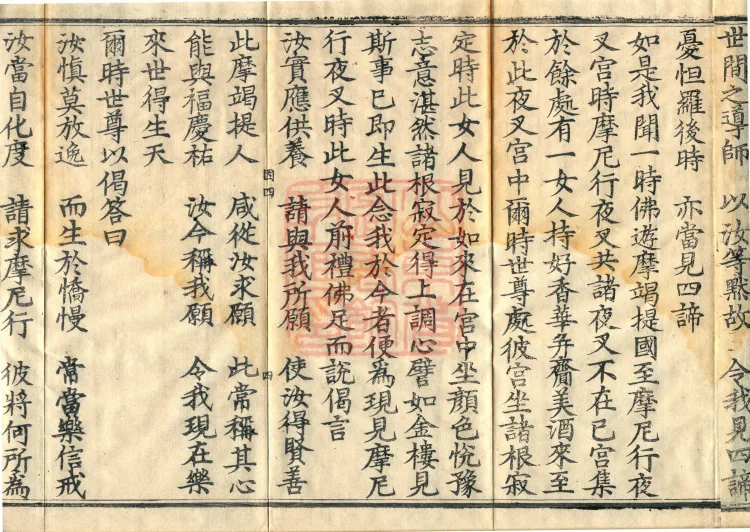 世間之導師　以汝等黙故　令我見四諦
憂怛羅後時　亦當見四諦
如是我聞一時佛遊摩竭提國至摩尼行夜
叉宮時摩尼行夜叉共諸夜叉不在已宮集
於餘處有一女人持好香華并齎美酒來至
於此夜叉宮中爾時世尊處彼宮坐諸根寂
定時此女人見於如來在宮中坐顏色悅豫
志意湛然諸根寂定得上調心譬如金樓見
斯事已即生此念我於今者便為現見摩尼
行夜叉時此女人前禮佛足而說偈言
汝實應供養　請與我所願　使汝得賢善
此摩竭提人　咸從汝求願　此常稱其心
能與福慶祐　汝今稱我願　令我現在樂
來世得生天
爾時世尊以偈答曰
汝慎莫放逸　而生於憍慢　常當樂信戒
汝當自化度　請求摩尼行　彼將何所為